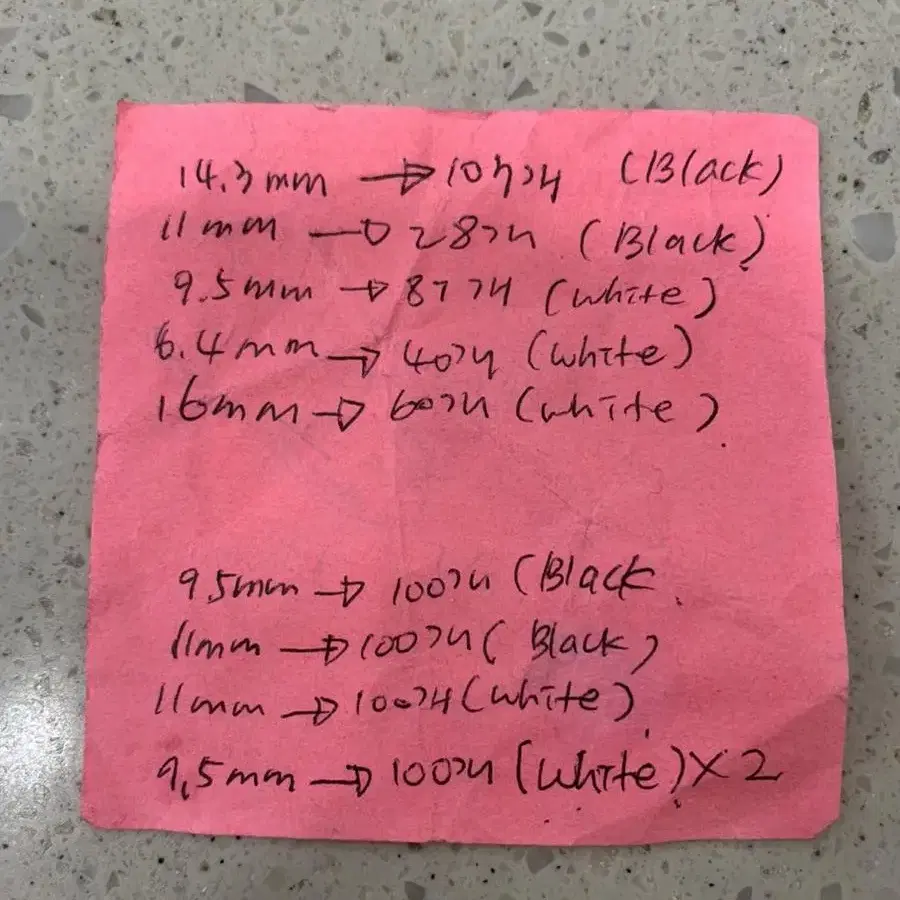 14.3mm → 107개 (Black)
11mm → 28개 (Black)
9.5mm → 87개 (white)
6.4mm → 40개 (white)
16mm → 60개 (white)
9.5mm → 100개 (Black
11mm → 100개 (Black)
11mm → 100개 (white)
9.5mm → 100개 (White) X 2